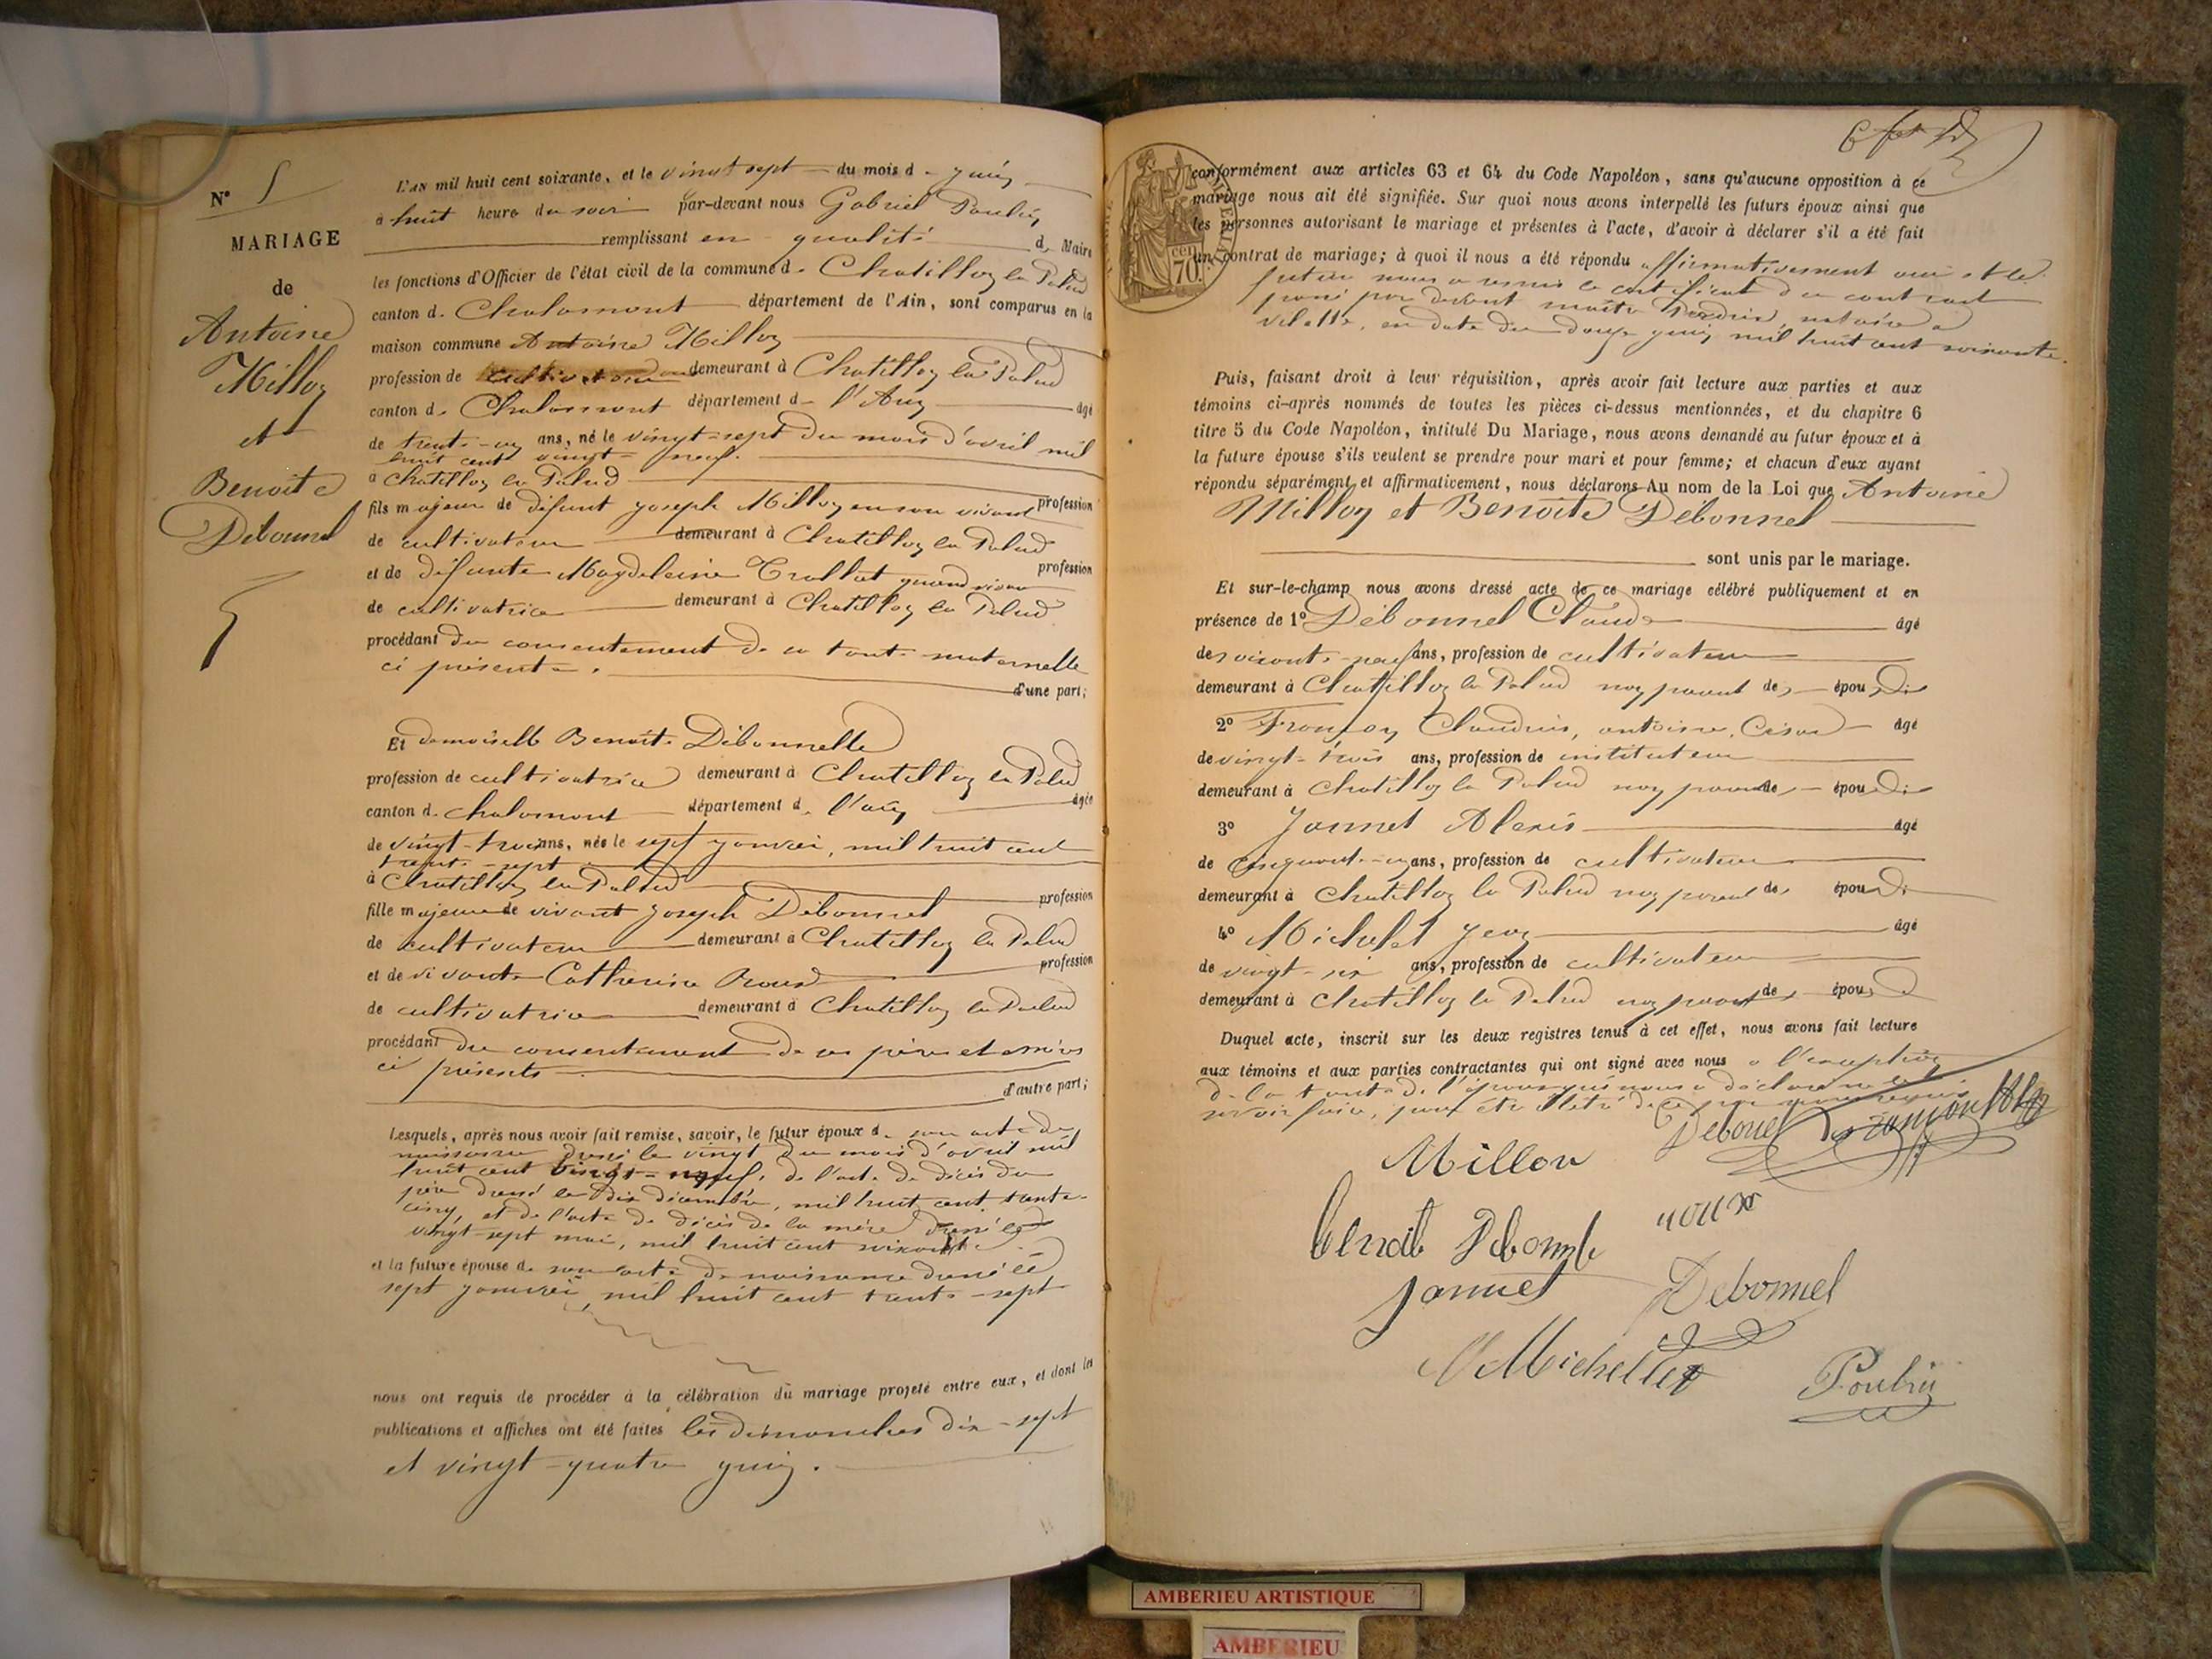 N° 5
MARIAGE
de
Antoine
Milloz
et
Benoite
Débonnel
L'AN mil huit cent soixante, et le vingt sept du mois d juin
à huit heure du soir par-devant nous Gabriel
remplissant en qualité de Maire
les fonctions d'Officier de l'état civil de la commune d. Chatillon la Palud
canton d. Chalamont département de l'Ain, sont comparus en la
maison commune Antoine Milloz
profession de cultivateur demeurant à Chatillon la Palud
canton d. Chalamont département d l'Ain âgé
de trente-un ans, né le vingt-sept du mois d'avril mil
huit cent vingt-neuf.
à Chatillon la Palud
fils majeur de défunt joseph Milloz en son vivant profession
de cultivateur demeurant à Chatillon la Palud
et de défunte Magdeleine Trollat quand vivait profession
de cultivatrice demeurant à Chatillon la Palud
procédant du consentement de sa tante maternelle
ci présente. d'une part;
Et demoiselle Benoite Débonnelle
profession de cultivatrice demeurant à Chatillon la Palud
canton d. chalamont département d. l'ain âgée
de vingt-trois ans, née le sept janvier, mil huit cent
trente-sept
à Chatillon la Palud
fille majeure de vivant Joseph Débonnel profession
de cultivateur demeurant à Chatillon la Palud
et de vivante Catherine Roux profession
de cultivatrice demeurant à Chatillon la Palud
procédant du consentement de ses père et mère
ci présents. d'autre part;
Lesquels, après nous avoir fait remise, savoir, le futur époux d. son acte de
naissance dressé le vingt du mois d'avril mil
huit cent vingt-neuf, de l'acte de décès du
père dressé le dix décembre, mil huit cent trente-
cinq, et de l'acte de décès de la mère dressé le
vingt-sept mai, mil huit cent soixante.
et la future épouse d. son acte de naissance dressé le
sept janvier, mil huit cent trente-sept
nous ont requis de procéder à la célébration du mariage projeté entre eux, et dont les
publications et affiches ont été faites les dimanches dix-sept
et vingt-quatre juin.
cen
70.
conformément aux articles 63 et 64 du Code Napoléon, sans qu'aucune opposition à ce
mariage nous ait été signifiée. Sur quoi nous avons interpellé les futurs époux ainsi que
les personnes autorisant le mariage et présentes à l'acte, d'avoir à déclarer s'il a été fait
un contrat de mariage; à quoi il nous a été répondu affirmativement oui et le
futur nous a remis le certificat du contrat
passé par devant maître notaire a
vilette, en date du douze juin mil huit cent soixante.
Puis, faisant droit à leur réquisition, après avoir fait lecture aux parties et aux
témoins ci-après nommés de toutes les pièces ci-dessus mentionnées, et du chapitre 6
titre 5 du Code Napoléon, intitulé Du Mariage, nous avons demandé au futur époux et à
la future épouse s'ils veulent se prendre pour mari et pour femme; et chacun d'eux ayant
répondu séparément et affirmativement, nous déclarons Au nom de la Loi que Antoine
Milloz et Benoite Débonnel
sont unis par le mariage.
Et sur-le-champ nous avons dressé acte de ce mariage célébré publiquement et en
présence de 1° Débonnel Claude âgé
de soixante-neuf ans, profession de cultivateur
demeurant à Chatillon la Palud non parent des épou
2° Claudius, antoine, César âgé
de vingt-trois ans, profession de instituteur
demeurant à Chatillon la Palud non parent de épou
3° Jannet Alexis âgé
de cinquante-un ans, profession de cultivateur
demeurant à Chatillon la Palud non parent des épou
4° Michelet Jean âgé
de vingt-six ans, profession de cultivateur
demeurant à Chatillon la Palud non parent des épou
Duquel acte, inscrit sur les deux registres tenus à cet effet, nous avons fait lecture
aux témoins et aux parties contractantes qui ont signé avec nous a l'exception
de la tante de l'époux qui nous a déclaré ne le
savoir faire, pour été
Debonel
Millon
benoite Debonnele roux
Jannet Debonnel
Michellet
AMBERIEU ARTISTIQUE
AMBERIEU